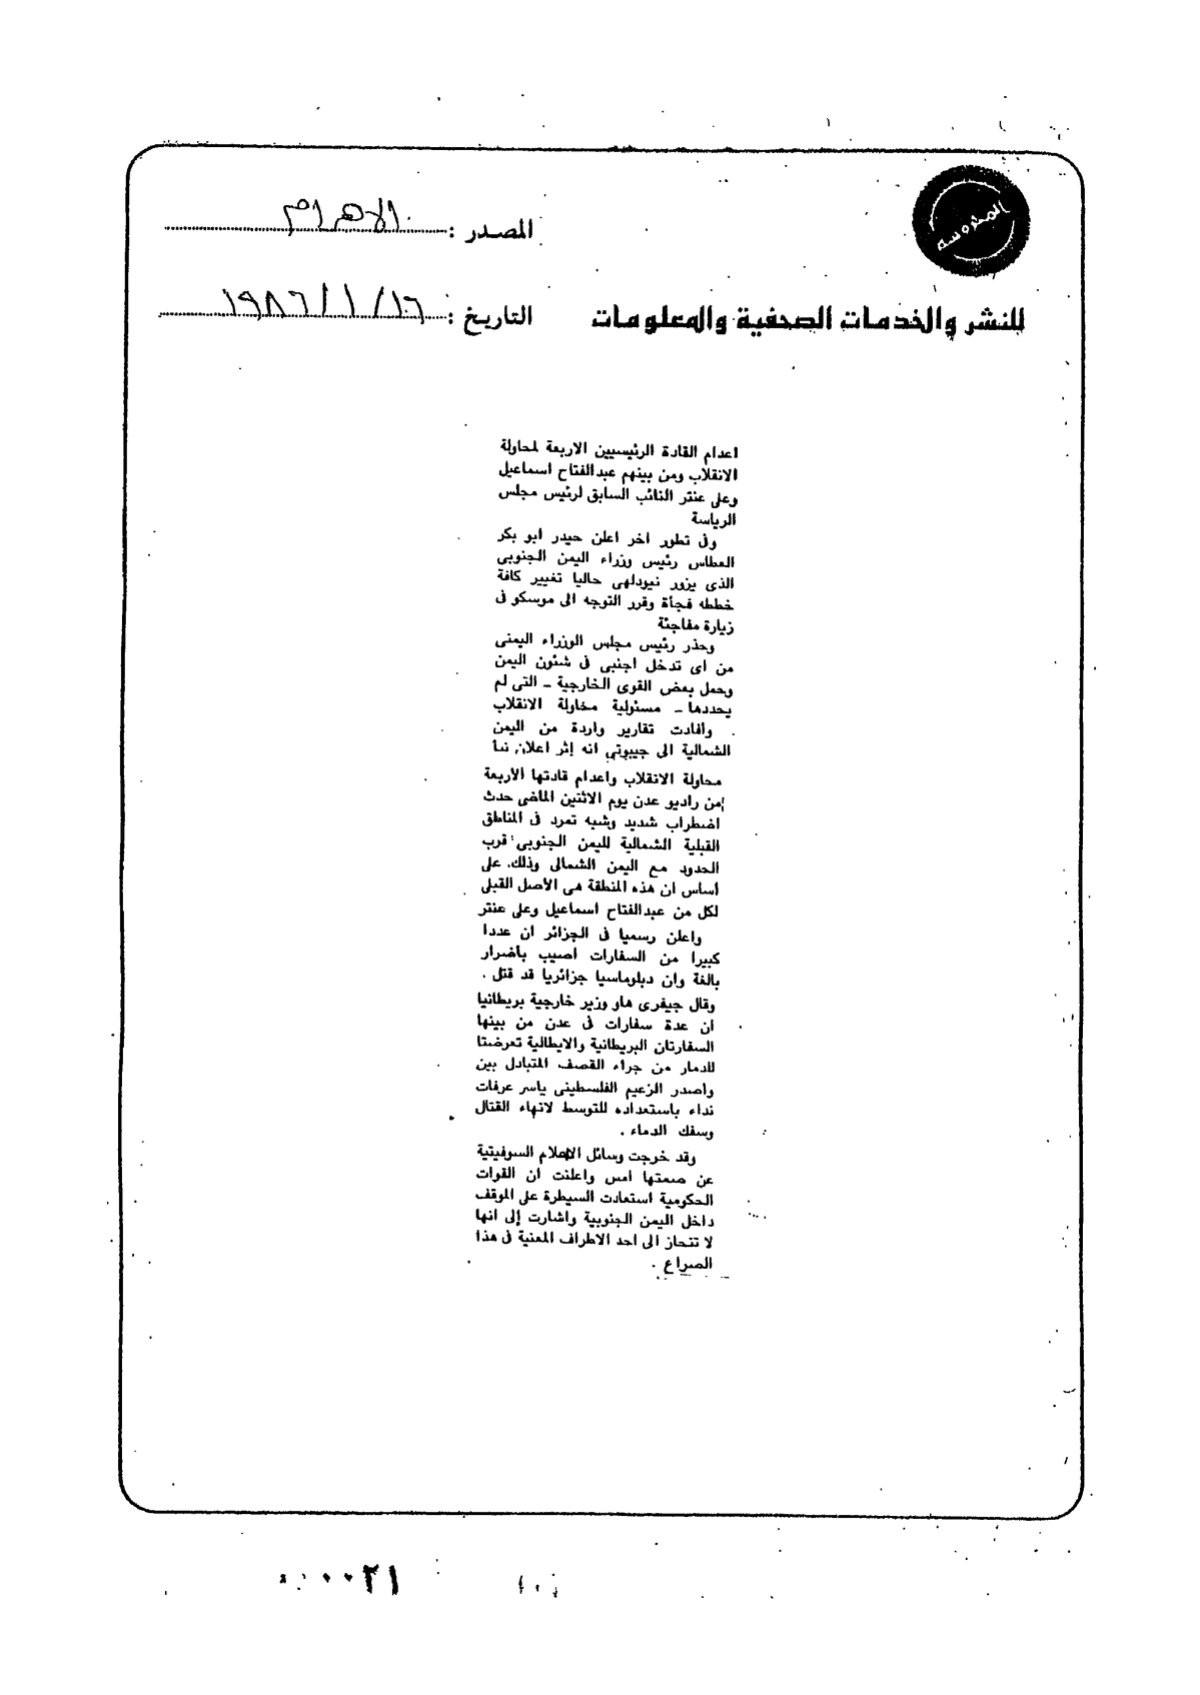 المحروسة
المصدر : الاهرام
للنشر والخدمات الصحفية والمعلومات
التاريخ : ١٦ / ١ / ١٩٨٦
اعدام القادة الرئيسيين الاربعة لمحاولة
الانقلاب ومن بينهم عبدالفتاح اسماعيل
وعلى عنتر النائب السابق لرئيس مجلس
الرياسة
وفى تطور اخر اعلن حيدر ابو بكر
العطاس رئيس وزراء اليمن الجنوبى
الذى يزور نيودلهى حاليا تغيير كافة
خططه فجأة وقرر التوجه الى موسكو فى
زيارة مفاجئة
وحذر رئيس مجلس الوزراء اليمنى
من اى تدخل اجنبى فى شئون اليمن
وحمل بعض القوى الخارجية ــ التى لم
يحددها ــ مسئولية محاولة الانقلاب
وأفادت تقارير واردة من اليمن
الشمالية الى جيبوتي انه إثر اعلان نبأ
محاولة الانقلاب واعدام قادتها الأربعة
من راديو عدن يوم الاثنين الماضى حدث
اضطراب شديد وشبه تمرد فى المناطق
القبلية الشمالية لليمن الجنوبى قرب
الحدود مع اليمن الشمالى وذلك على
أساس ان هذه المنطقة هى الأصل القبلى
لكل من عبدالفتاح اسماعيل وعلى عنتر
واعلن رسميا فى الجزائر ان عددا
كبيرا من السفارات اصيب بأضرار
بالغة وان دبلوماسيا جزائريا قد قتل .
وقال جيفرى هاو وزير خارجية بريطانيا
ان عدة سفارات فى عدن من بينها
السفارتان البريطانية والايطالية تعرضتا
للدمار من جراء القصف المتبادل بين
وأصدر الزعيم الفلسطينى ياسر عرفات
نداء باستعداده للتوسط لانهاء القتال
وسفك الدماء .
وقد خرجت وسائل الاعلام السوفيتية
عن صمتها امس واعلنت ان القوات
الحكومية استعادت السيطرة على الموقف
داخل اليمن الجنوبية واشارت إلى انها
لا تنحاز الى احد الاطراف المعنية فى هذا
الصراع .
٠٠٢١